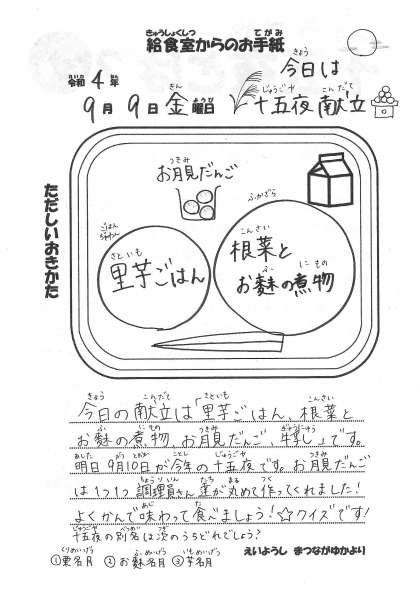 きゅうしょくしつ てがみ
給食室からのお手紙
れいわ ねん きょう
令和 4 年 今日は
がつ か きん ようび じゅうごや こんだて
9月 9日 金 曜日 十五夜 献立
ただしいおきかた
つきみ
お月見だんご
ごはん
ちゃわん
さといも
里芋ごはん
ふかざら
こんさい
根菜と
ふ にもの
お麩の煮物
きょう こんだて さといも こんさい
今日の献立は「里芋ごはん、根菜と
ふ にもの つきみ ぎゅうにゅう
お麩の煮物、お月見だんご、牛乳」です。
あした がつ とおか ことし じゅうごや つきみ
明日 9月10日が今年の十五夜です。お月見だんご
ちょうりいん たち まる つく
は1つ1つ 調理員さん達が丸めて作ってくれました!
あじ た
よくかんで味わって食べましょう!☆クイズです!
じゅうごや べつめい つぎ
十五夜の別名は次のうちどれでしょう?
くりめいげつ ふめいげつ いもめいげつ
①栗名月 ②お麩名月 ③芋名月
えいようし まつながゆかより